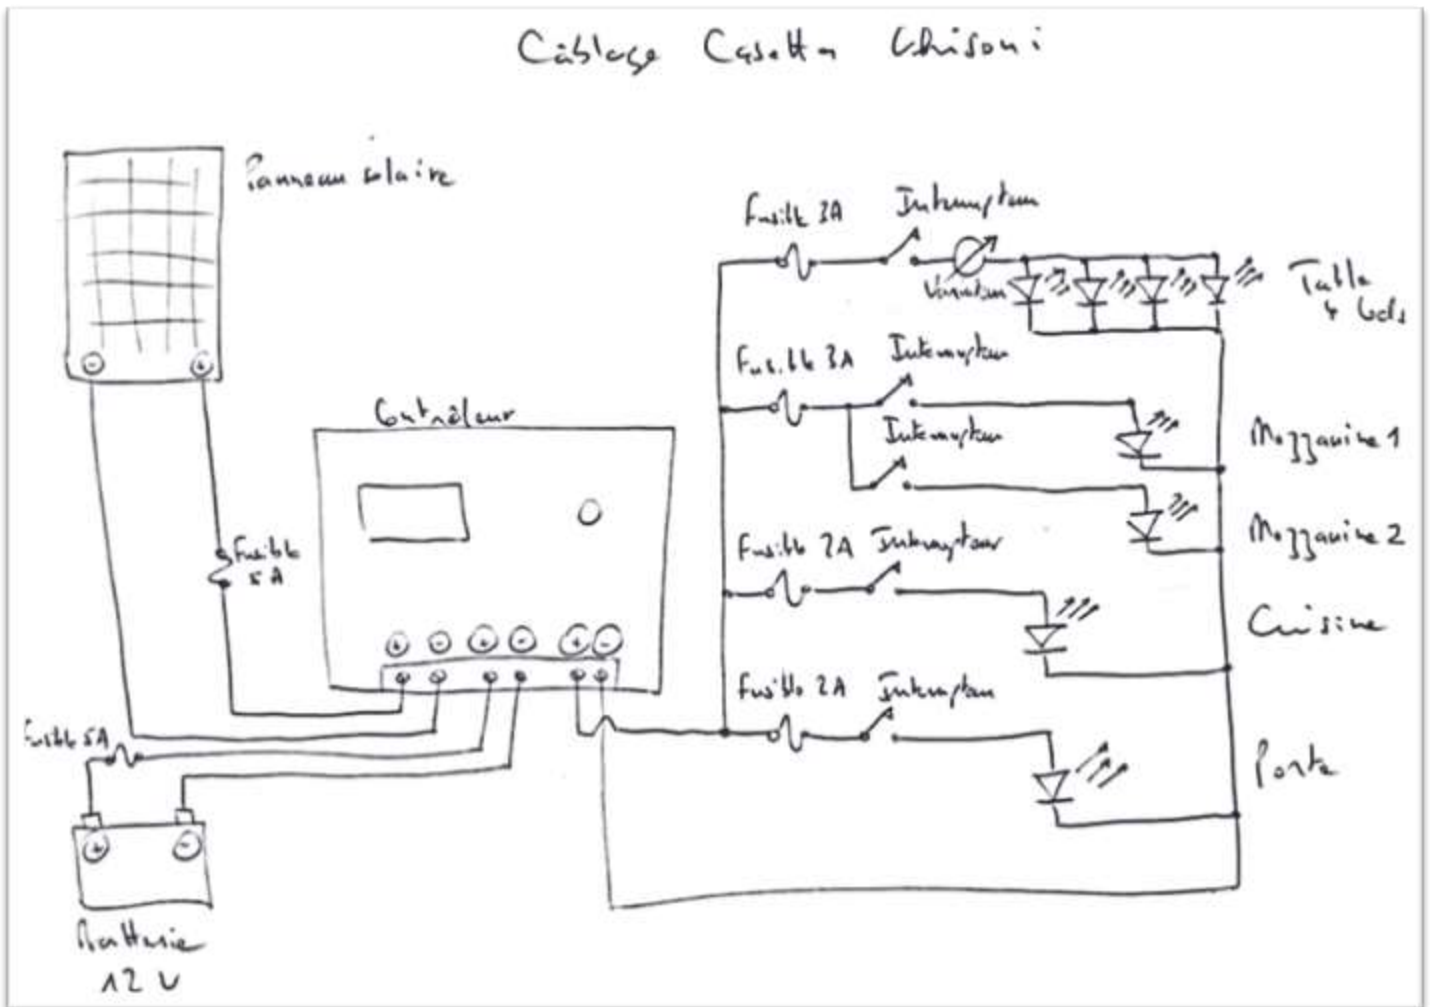 Câblage Casetta Ghisoni
Panneau solaire
Fusible 3A Interrupteur
Variateur
Table
4 leds
Fusible 3A Interrupteur
Interrupteur
Mezzanine 1
Mezzanine 2
Contrôleur
Fusible
5A
Fusible 2A Interrupteur
Cuisine
+ - + - + -
Fusible 2A Interrupteur
Porte
Fusible 5A
+ -
Batterie
12 V